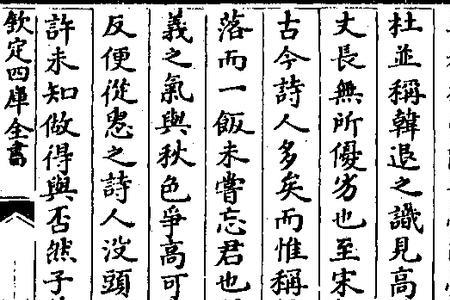 杜並稱韓退之識見高
丈長無所優劣也至宋
古今詩人多矣而惟稱
落而一飯未嘗忘君也
義之氣與秋色爭高可
反便從愚之詩人沒頭
許未知做得與否然子
欽定四庫全書